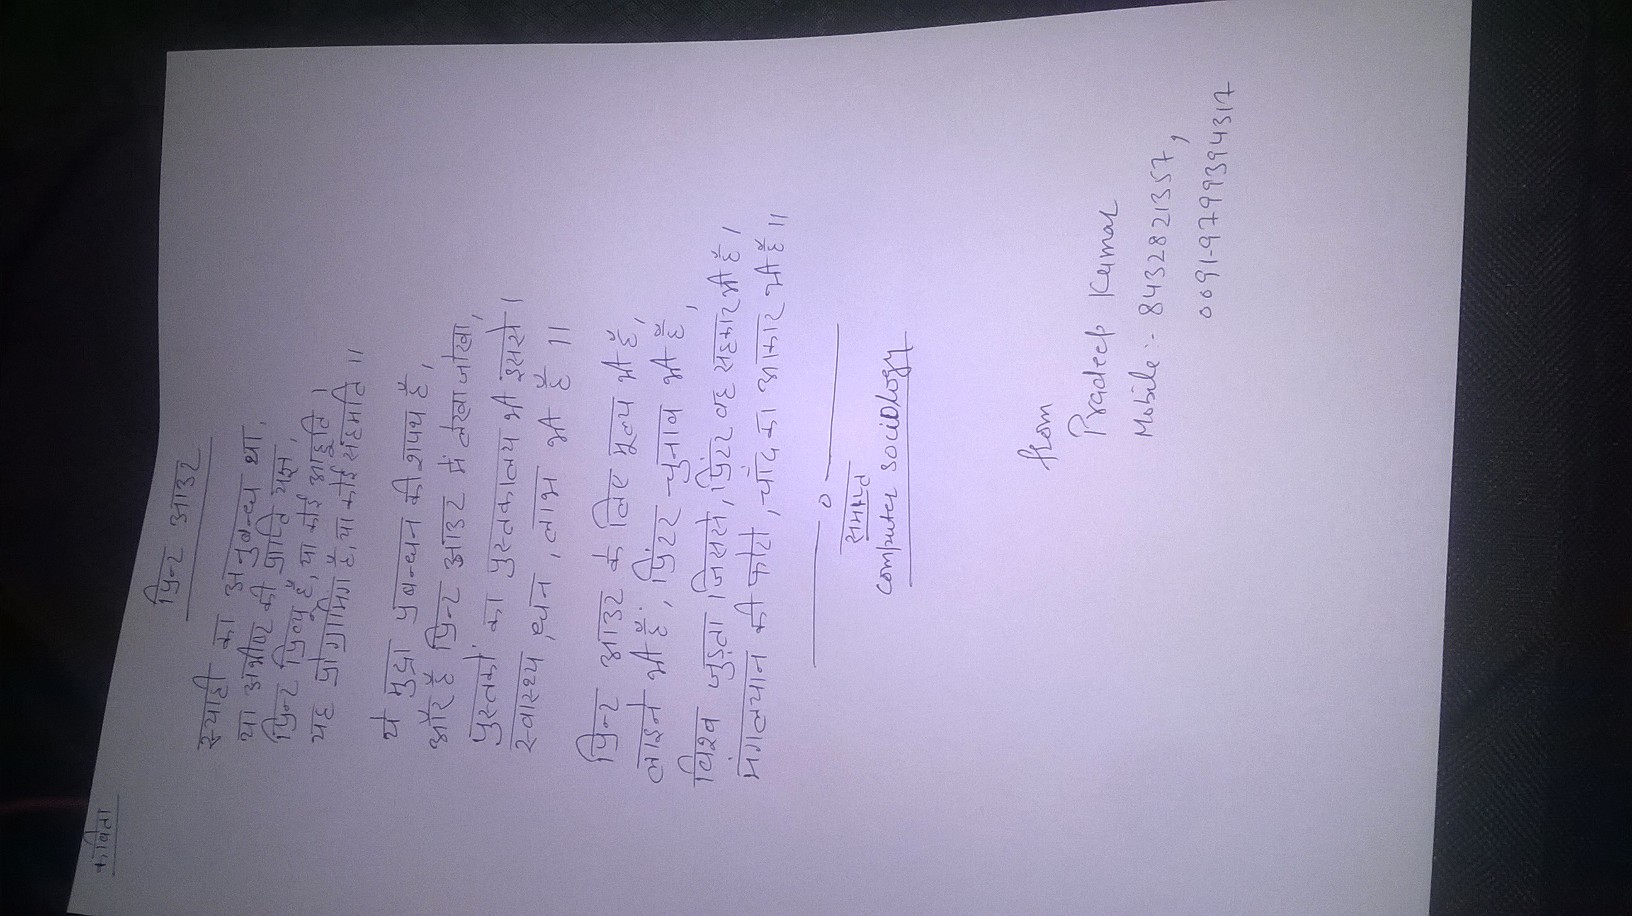 कविता
प्रिन्ट आउट
स्याही का अनुबन्ध था,
या अभीष्ट की प्राप्ति यज्ञ,
प्रिन्ट प्रिव्यू है, या कोई आहूति ।
यह प्रोग्रामिंग है, या कोई सहमति ॥
ये मुद्रा प्रबन्धन की शपथ है,
और है प्रिन्ट आउट में लेखा जोखा,
पुस्तकों का पुस्तकालय भी इससे ।
स्वास्थ्य, धन, लाभ भी है ॥
प्रिन्ट आउट के लिए मूल्य भी है,
लाइने भी है, प्रिंट चुनाव भी है,
विश्व जुड़ता जिससे, प्रिंट वह सहकार भी है ।
मंगलयान की फोटो, चाँद का आकार भी है ॥
समाप्त
computer sociology
from
Pradeep Kumar
Mobile :- 8432821357,
0091-9799394317